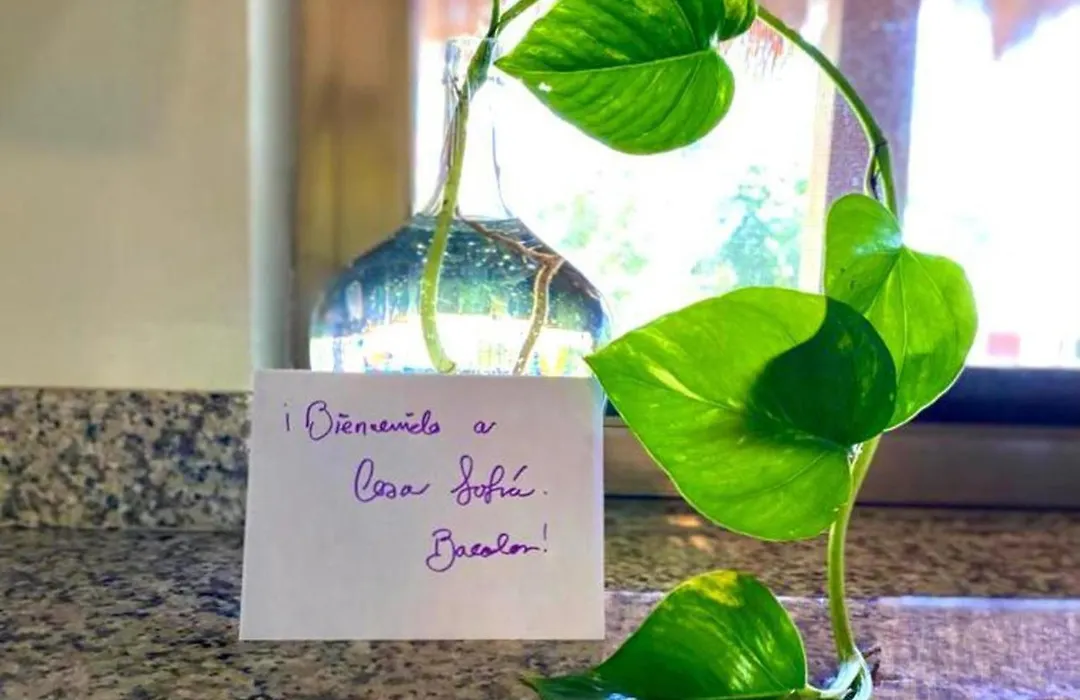 ¡Bienvenido a
Casa Sofía.
Bacalar!